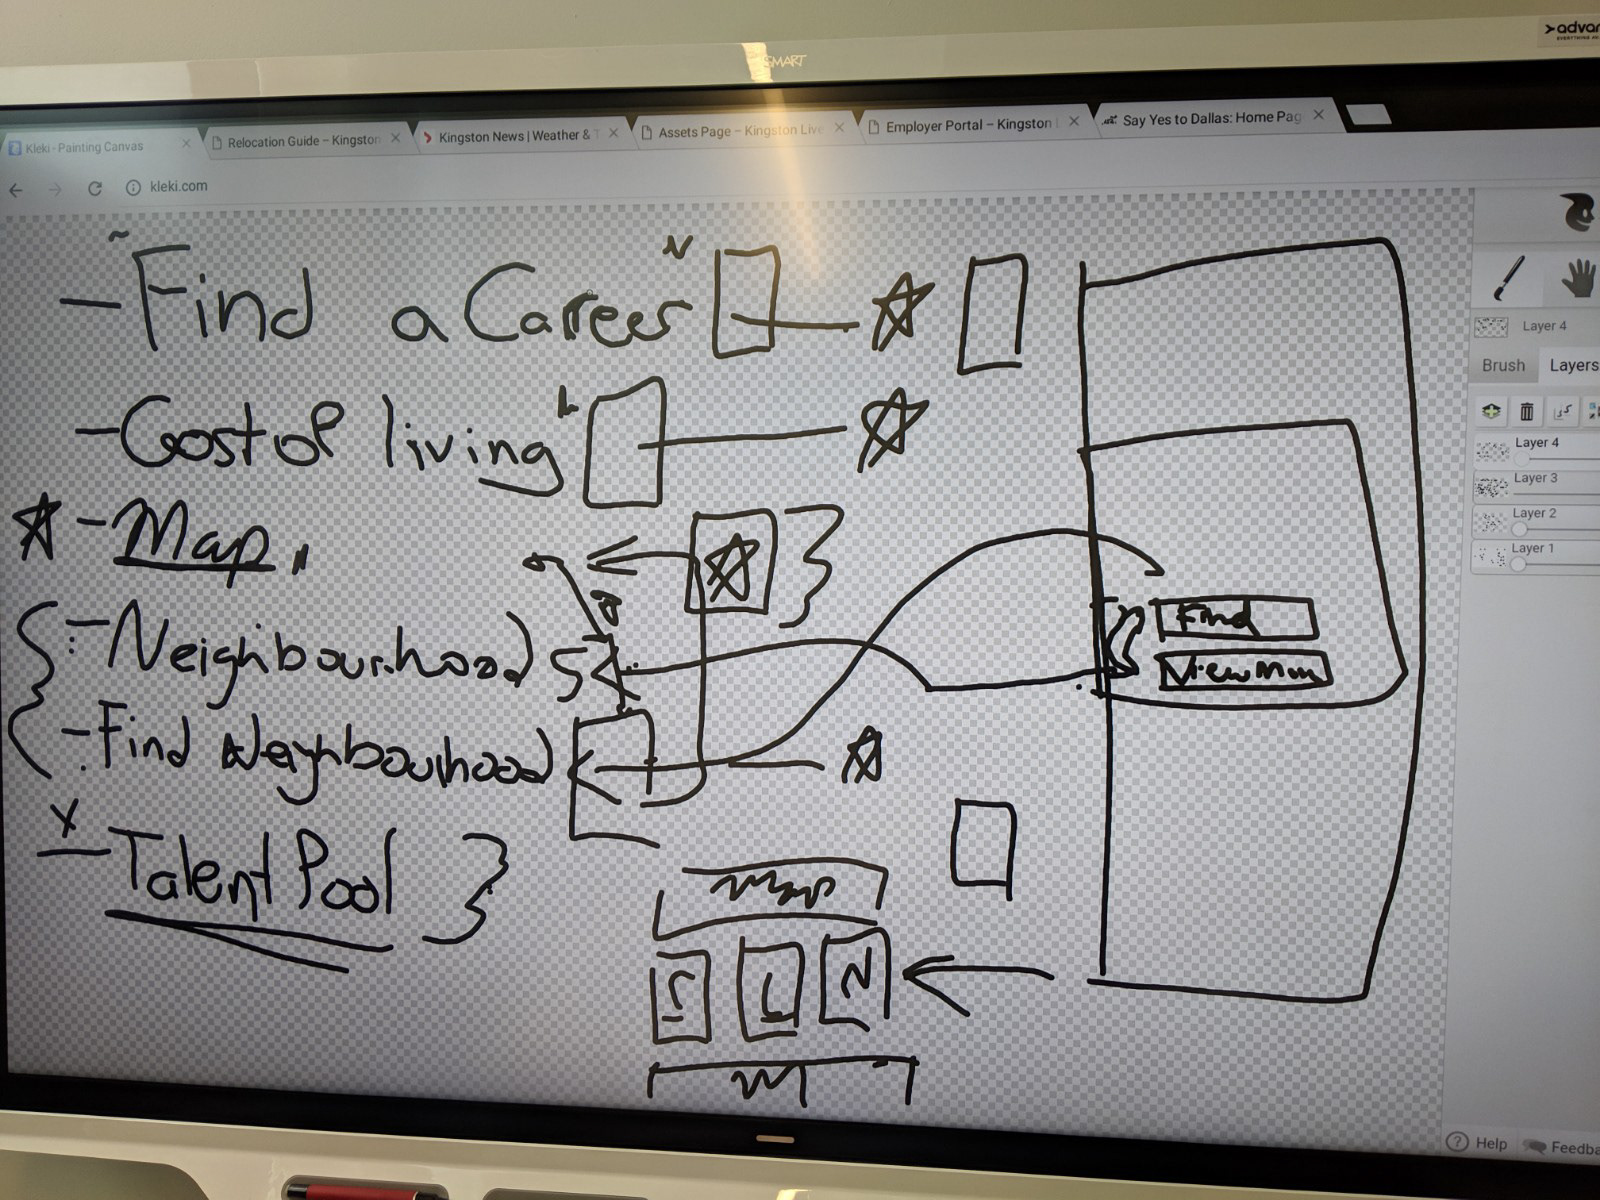 SMART
Kleki - Painting Canvas
Relocation Guide – Kingston
Kingston News | Weather &
Assets Page – Kingston Live
Employer Portal – Kingston
Say Yes to Dallas: Home Pag
kleki.com
- Find a Career
- Cost of living
- Map
- Neighbourhood
- Find Neighbourhood
- Talent Pool
Find
View Map
Map
Layer 4
Brush Layers
Layer 4
Layer 3
Layer 2
Layer 1
Help Feedba